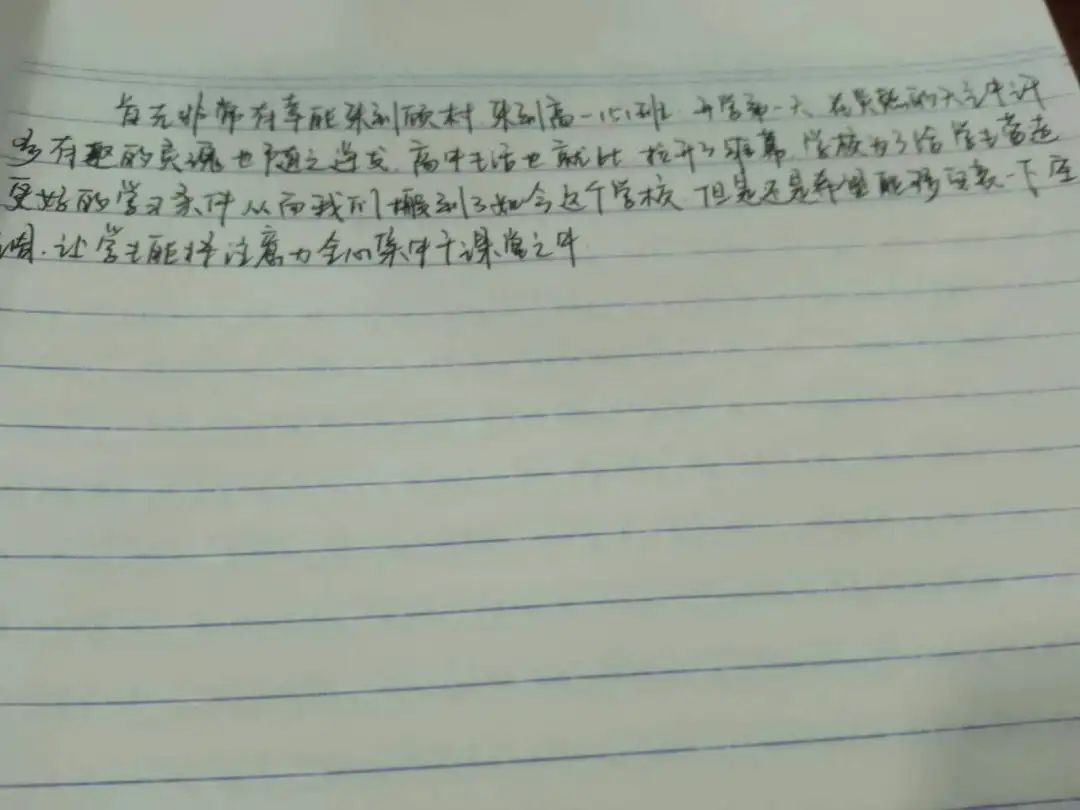 首先非常有幸能来到顾村 来到高一151班 开学第一天 在炎热的天气中许
多有趣的灵魂也随之迸发 高中生活也就此 拉开了班幕 学校为了给学生营造
更好的学习条件 从而我们搬到了如今这个学校 但是还是希望能够安装一下空
调 让学生能将注意力全心集中于课堂之中